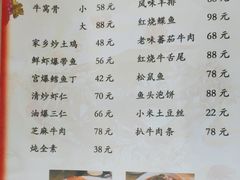 牛窝骨 小 58元
大 88元
家乡炒土鸡 48元
鲜虾爆带鱼 56元
宫爆鳕鱼丁 42元
清炒虾仁 70元
油爆三仁 66元
芝麻牛肉 78元
烧全素 38元
风味羊排
红烧鲽鱼 58元
老味蕃茄牛肉 68元
红烧牛舌尾 88元
松鼠鱼 78元
鱼头泡饼 88元
小米土豆丝 22元
扒牛肉条 78元